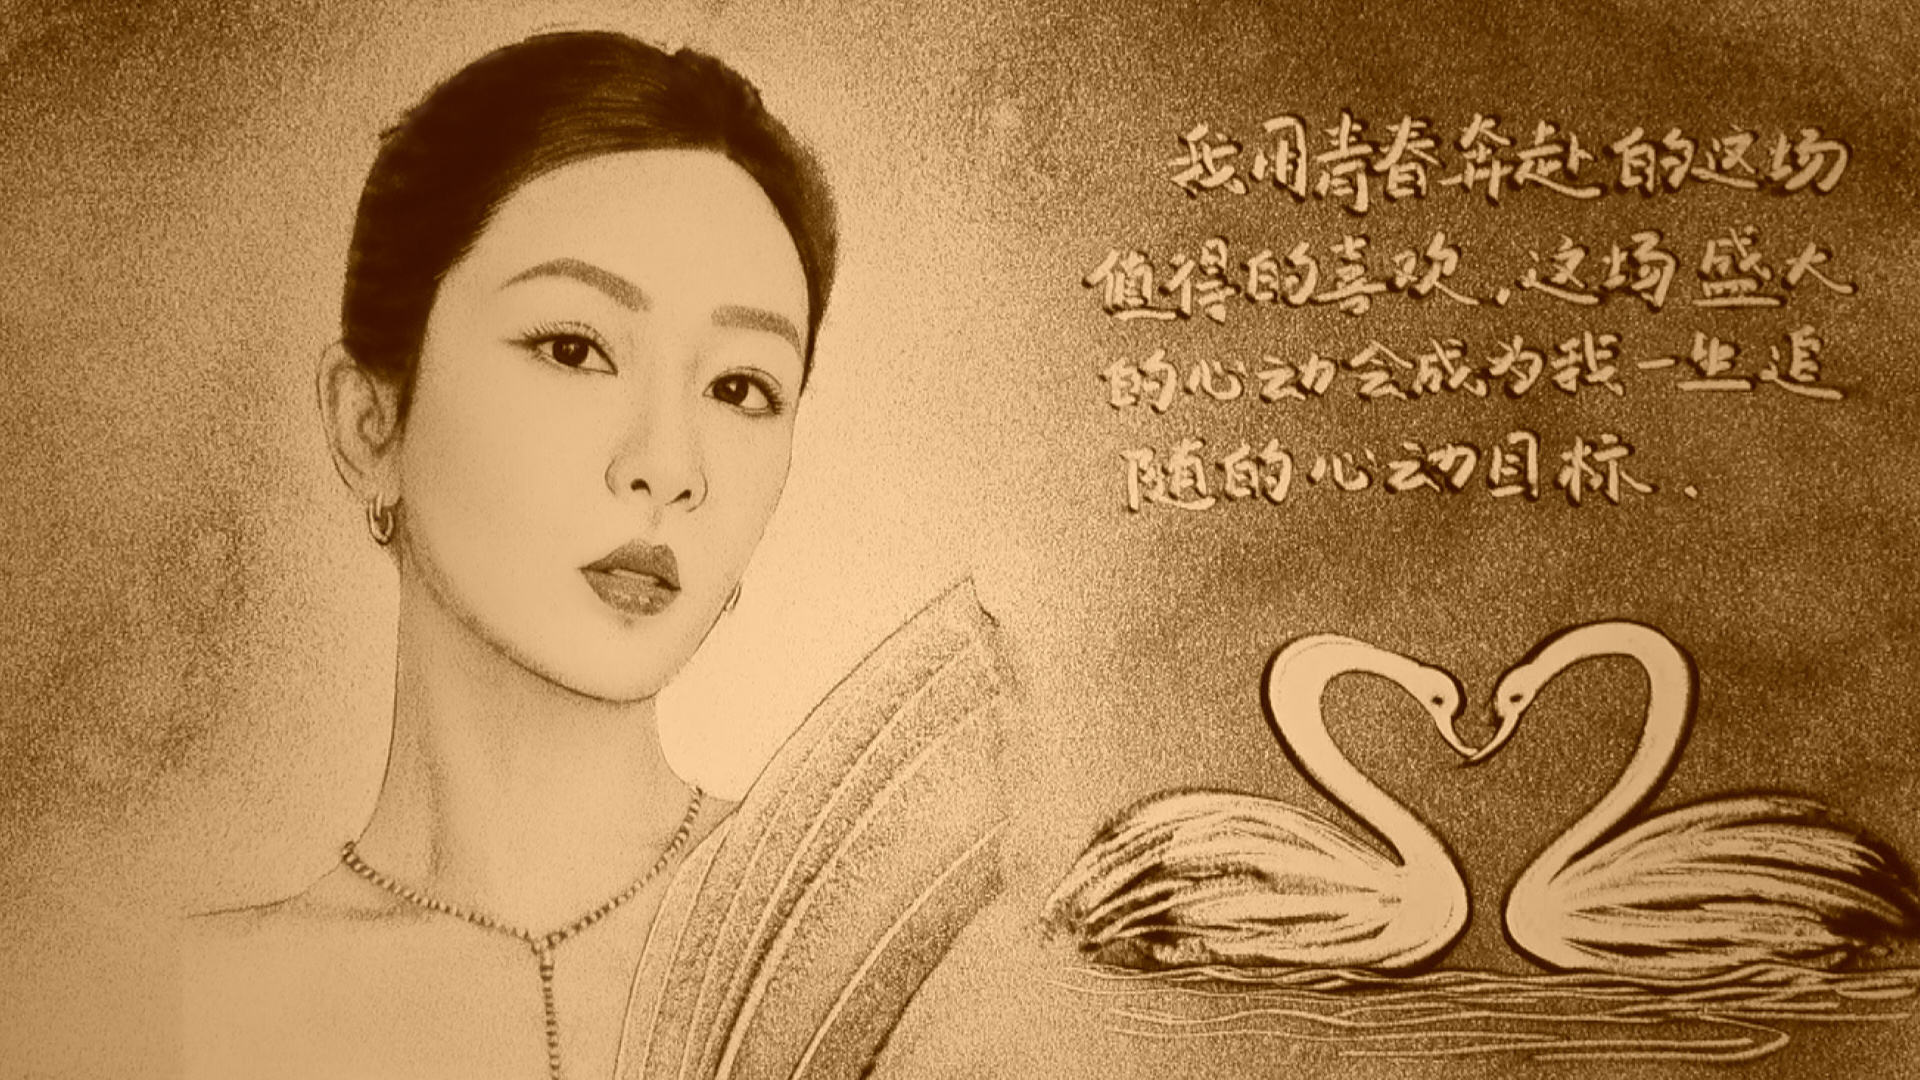 我用青春奔赴的这场
值得的喜欢,这场盛大
的心动会成为我一生追
随的心动目标.